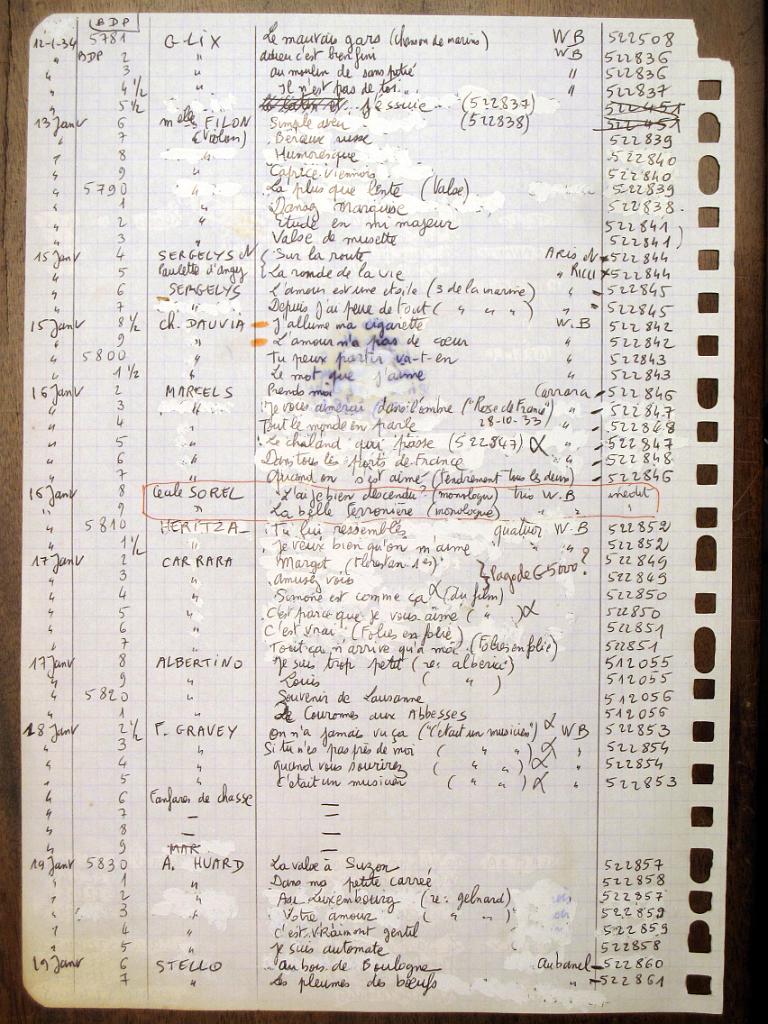 BDP
12-1-34 5781 G-LIX Le mauvais gars (chanson de marins) WB 522508
" BDP 2 " adieu c'est bien fini WB 522836
" 3 " au moulin de sans pitié " 522836
" 4 1/2 " Il n'est pas de toi... " 522837
" 5 1/2 j'essuie (522837) 522451
13 Janv 6 melle FILON Simple aveu (522838) 522451
" 7 (Violon) Berceuse russe 522839
" 8 " Humoresque 522840
" 9 " Caprice viennois 522840
" 5790 " La plus que lente (Valse) 522839
" 1 " Dansez marquise 522838
" 2 " etude en mi majeur 522841
" 3 " Valse de musette 522841)
15 Janv 4 SERGELYS Sur la route ARIS 522844
" 5 Paulette d'angy La ronde de la vie " RICCI 522844
" 6 SERGELYS L'amour est une etoile (3 de la marine) " 522845
" 7 " Depuis j'ai peur de tout ( " " " ) " 522845
15 Janv 8 1/2 Ch. DAUVIA J'allume ma cigarette W.B 522842
" 9 " L'amour n'a pas de cœur " 522842
" 5800 " Tu peux partir va-t-en " 522843
" 1 1/2 " Le mot que j'aime " 522843
16 Janv 2 MARCELS Prends moi Carrara 522846
" 3 " Je vous aimerai dans l'ombre ("Rose de France") " 522847
" 4 " Tout le monde en parle 28-10-33 " 522848
" 5 " Le chaland qui passe (522847) α " 522847
" 6 " Dans tous les ports de France " 522848
" 7 " Quand on s'est aimé (tendrement tous les deux) 522846
16 Janv 8 Cecile SOREL "L'ai je bien descendu? (monologue) trio W.B inedit
" 9 " La belle ferronière (monologue) " " "
" 5810 HERITZA Tu lui ressembles quatuor W-B 522852
" 1 1/2 " Je veux bien qu'on m'aime " " 522852
17 Janv 2 CARRARA Margot (Florestan 1er) 522849
" 3 " amusez vous } Pagode G 5000? 522849
" 4 " Simone est comme ça α (du film) 522850
" 5 " C'est parce que je vous aime ( " ) α 522850
" 6 " C'est vrai (Folies en folie) 522851
" 7 " Tout ça n'arrive qu'à moi (Folies en folie) 522851
17 Janv 8 ALBERTINO Je suis trop petit (re: alberia) 512055
" 9 " Louis ( " ) 512055
" 5820 " Souvenir de Lausanne 512056
" 1 " De Couronnes aux Abbesses 512056
18 Janv 2 1/2 F. GRAVEY On n'a jamais vu ça ("c'était un musicien") α WB 522853
" 3 " Si tu n'es pas près de moi ( " " ) α " 522854
" 4 " quand vous sourirez ( " " ) α " 522854
" 5 " c'était un musicien ( " " ) α " 522853
" 6 Fanfares de chasse —
" 7 — —
" 8 — —
" 9 MAR —
19 Janv 5830 A. HUARD La valse à Suzon 522857
" 1 " Dans ma petite carrée 522858
" 2 " Au Luxembourg (re: gelnard) 522357
" 3 " Votre amour ( " " ) 522859
" 4 " c'est vraiment gentil 522859
" 5 " Je suis automate 522858
19 Janv 6 STELLO au bois de Boulogne aubanel 522860
" 7 " Les pleumes des bœufs 522861